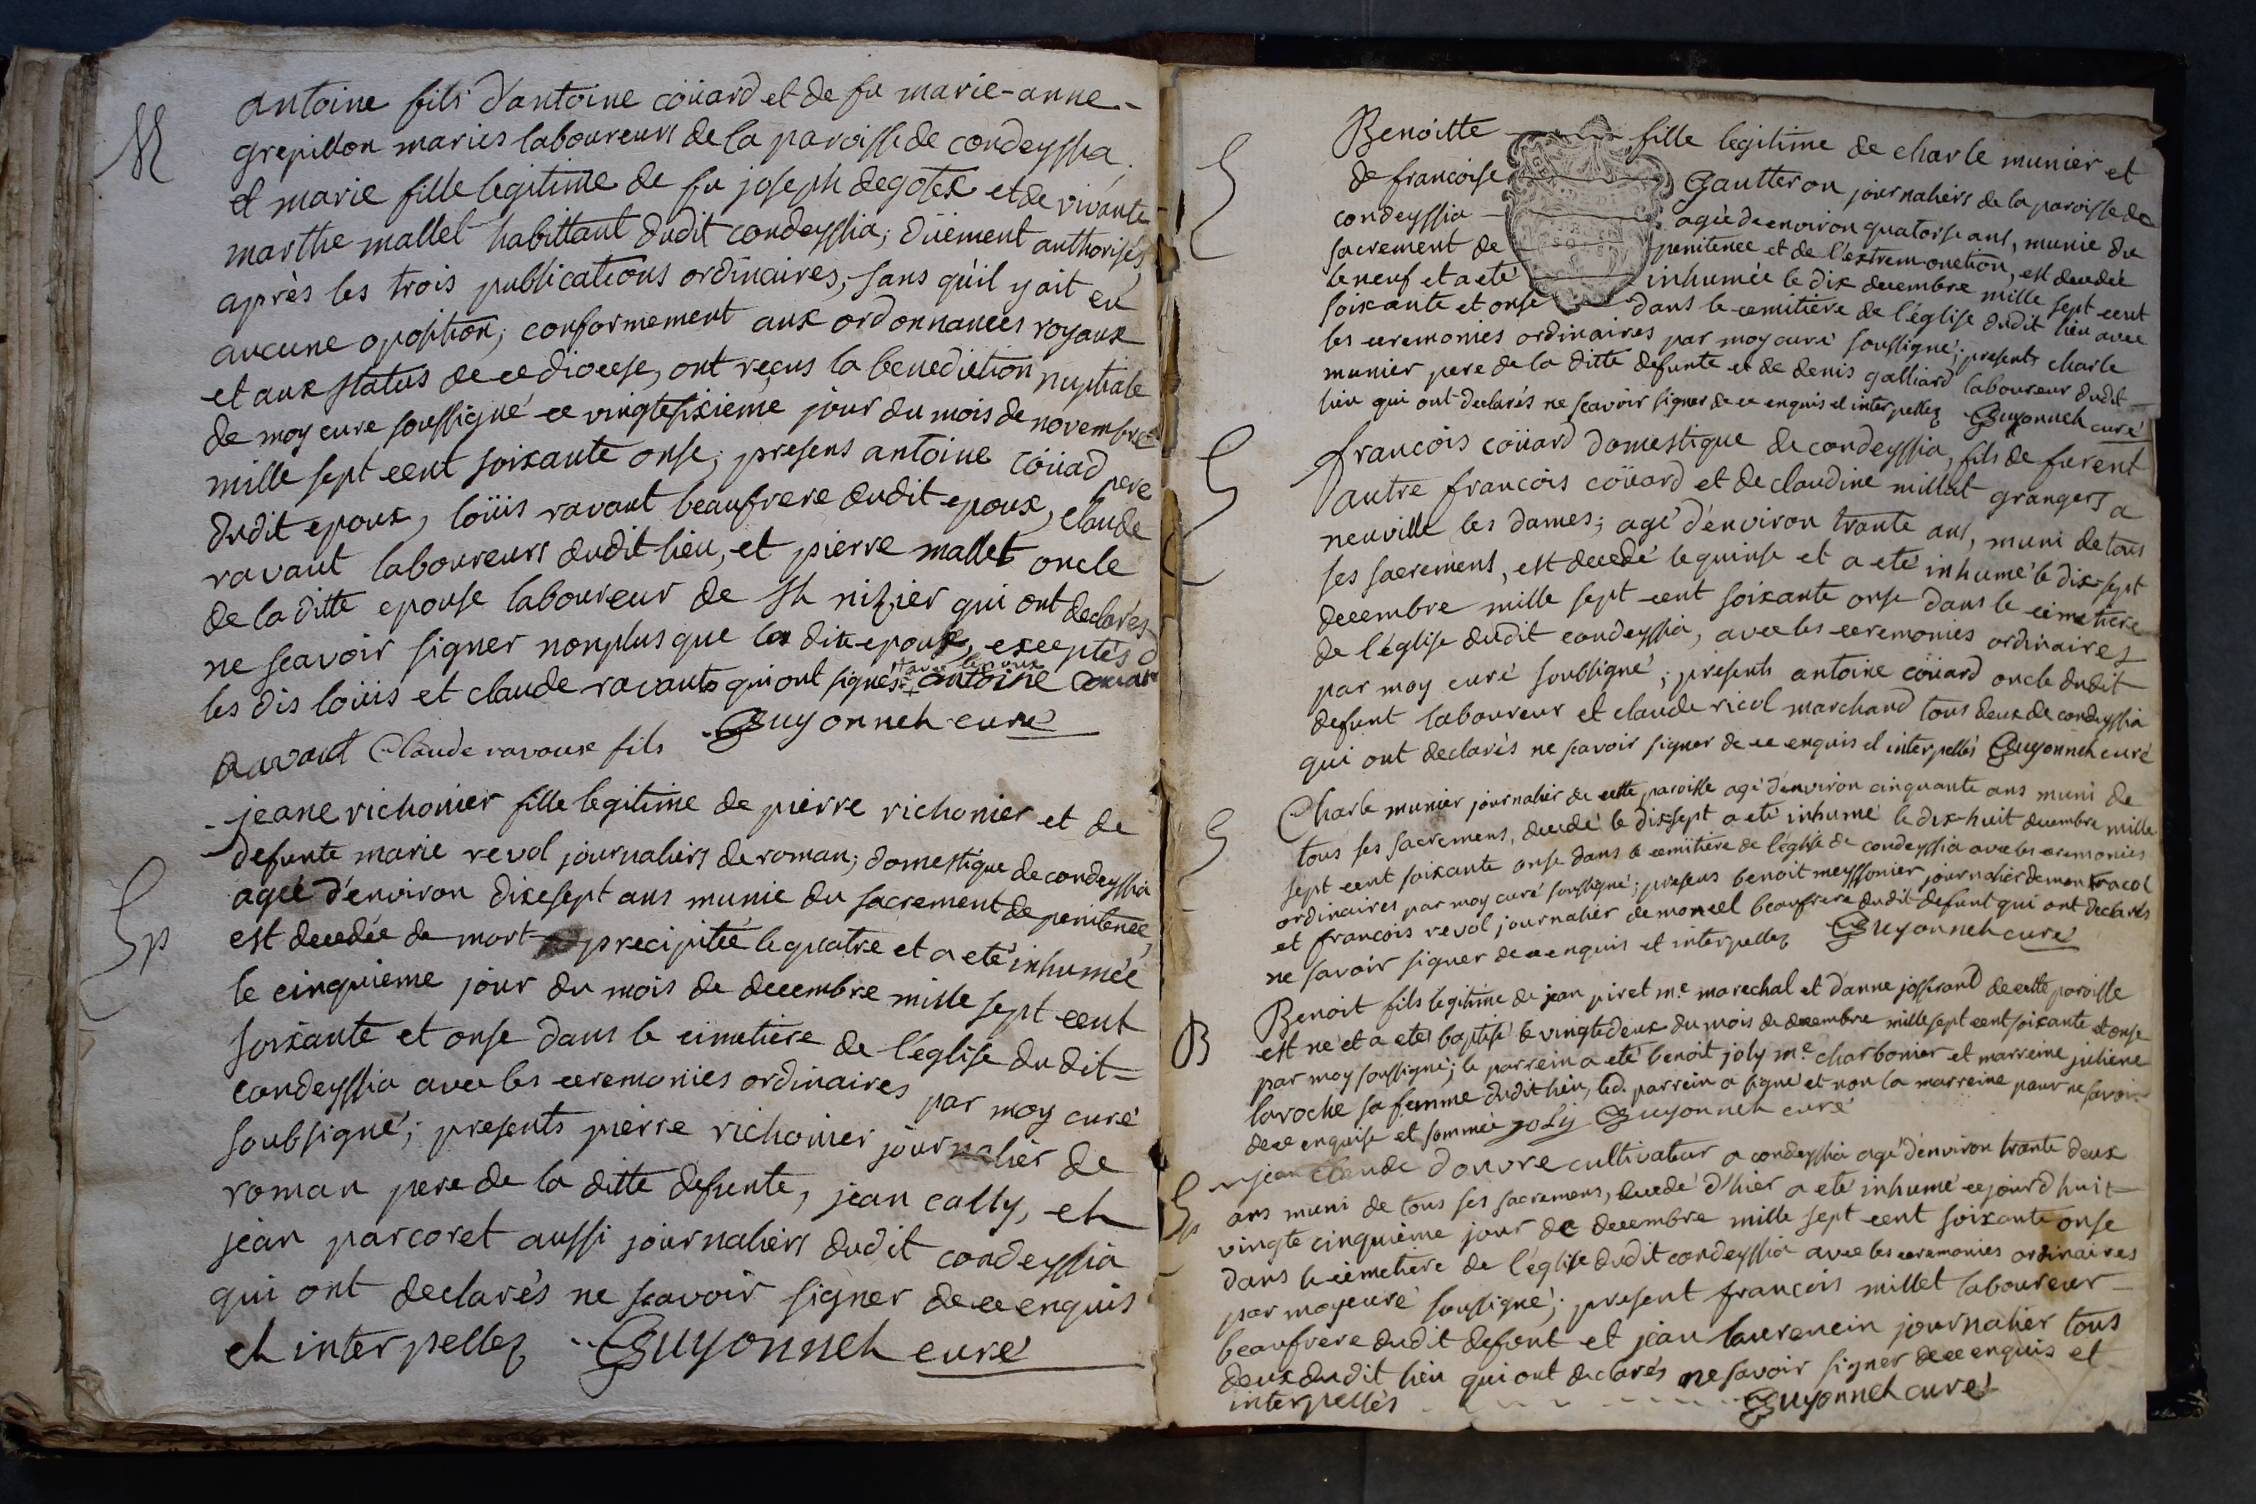 M
antoine fils d'antoine coüard et de fu marie-anne
grepillon maries laboureurs de la paroisse de condeyssia
et marie fille legitime de fu joseph degotex et de vivante
marthe mallet habittant dudit condeyssia; düement authorisés,
après les trois publications ordinaires, sans qu'il y ait eu
aucune oposition, conformement aux ordonnances royaux
et aux status de ce diocese, ont reçus la benediction nuptiale
de moy cure soussigné ce vingtesixieme jour du mois de novembre
mille sept cent soixante onse; presens antoine coüad pere
dudit epoux, loüis ravant beaufrere dudit epoux, claude
ravant laboureurs dudit lieu, et pierre mallet oncle
de la ditte epouse laboureur de st nizier qui ont declarés
ne scavoir signer nonplus que la dite epouse, exceptés
les dis loüis et claude ravants qui ont signés avec lepoux antoine Couar
Ravant Claude ravoux fils Guyonnet curé
jeane richonier fille legitime de pierre richonier et de
defunte marie revol journaliers de roman; domestique de condeyssia
agée d'environ dixesept ans munie du sacrement de penitence,
Sp
est decedée de mort precipitée le quatre et a eté inhumée
le cinquieme jour du mois de decembre mille sept cent
soixante et onse dans le cimetiere de l'église du dit
condeyssia avec les ceremonies ordinaires par moy curé
soubsigné; presents pierre richonier journalier de
roman pere de la ditte defunte, jean cally, et
jean parcoret aussi journaliers dudit condeyssia
qui ont declarés ne scavoir signer de ce enquis
et interpellez Guyonnet curé
Benoitte fille legitime de charle munier et
de francoise Gautteron journaliers de la paroisse de
condeyssia agée de environ quatorse ans, munie du
sacrement de penitence et de l'extremonction, est decedée
le neuf et a eté inhumée le dix decembre mille sept cent
soixante et onse dans le cemitiere de l'église dudit lieu avec
les ceremonies ordinaires par moy curé soussigné; presents charle
munier pere de la ditte defunte et de denis galliard laboureur dudit
lieu qui ont declarés ne scavoir signer de ce enquis et interpellez Guyonnet curé
francois coüard domestique de condeyssia, fils de furent
autre francois coüard et de claudine millat grangers a
neuville les dames; agé d'environ trante ans, muni de tous
ses sacremens, est decedé le quinse et a eté inhumé le dix-sept
decembre mille sept cent soixante onse dans le cimetiere
de l'église dudit condeyssia, avec les ceremonies ordinaires
par moy curé soubsigné; presents antoine coüard oncle dudit
defunt laboureur et claude ricol marchand tous deux de condeyssia
qui ont declarés ne scavoir signer de ce enquis et interpellés Guyonnet curé
Charle munier journalier de cette paroisse agé d'environ cinquante ans muni de
tous ses sacremens, decedé le dixsept a eté inhumé le dix-huit decembre mille
sept cent soixante onse dans le cemitiere de l'église de condeyssia avec les ceremonies
ordinaires par moy curé soussigné; presens benoit meyssonier journalier de montracol
et francois revol journalier de moncel beaufrere dudit defunt qui ont declarés
ne savoir signer de ce enquis et interpellez Guyonnet curé
B
Benoit fils legitime de jean piret me. marechal et d'anne josserand de cette paroisse
est né et a eté baptisé le vingtedeux du mois de decembre mille sept cent soixante et onse
par moy soussigné; le parrein a eté benoit joly me. charbonier et marreine juliene
laroche sa femme dudit lieu, led. parrein a signé et non la marreine pour ne savoir
de ce enquise et sommée joly Guyonnet curé
Sp
jean claude douvre cultivateur a condeyssia agé d'environ trante deux
ans muni de tous ses sacremens, decedé d'hier a eté inhumé cejourdhuit
vingte cinquième jour de decembre mille sept cent soixante onse
dans le cimetiere de l'église dudit condeyssia avec les ceremonies ordinaires
par moy curé soussigné; present francois millet laboureur
beaufrere dudit defont et jean laurencin journalier tous
deux dudit lieu qui ont declarés ne savoir signer de ce enquis et
interpellés Guyonnet curé